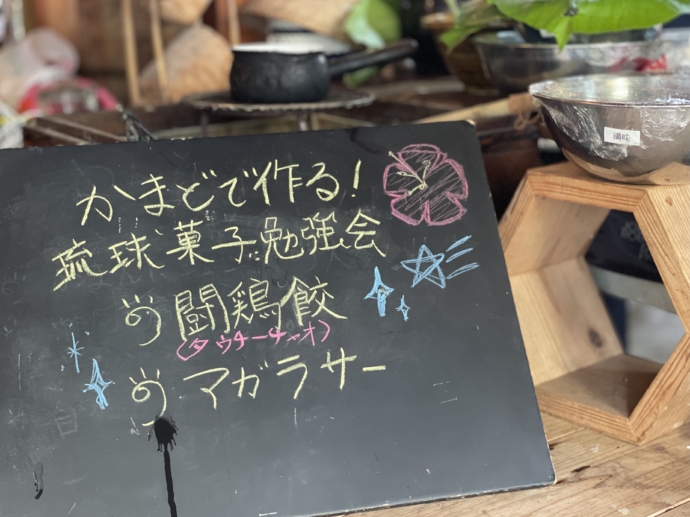 かまどで作る!
琉球菓子勉強会
闘鶏餃
(タウチーチャオ)
マガラサー